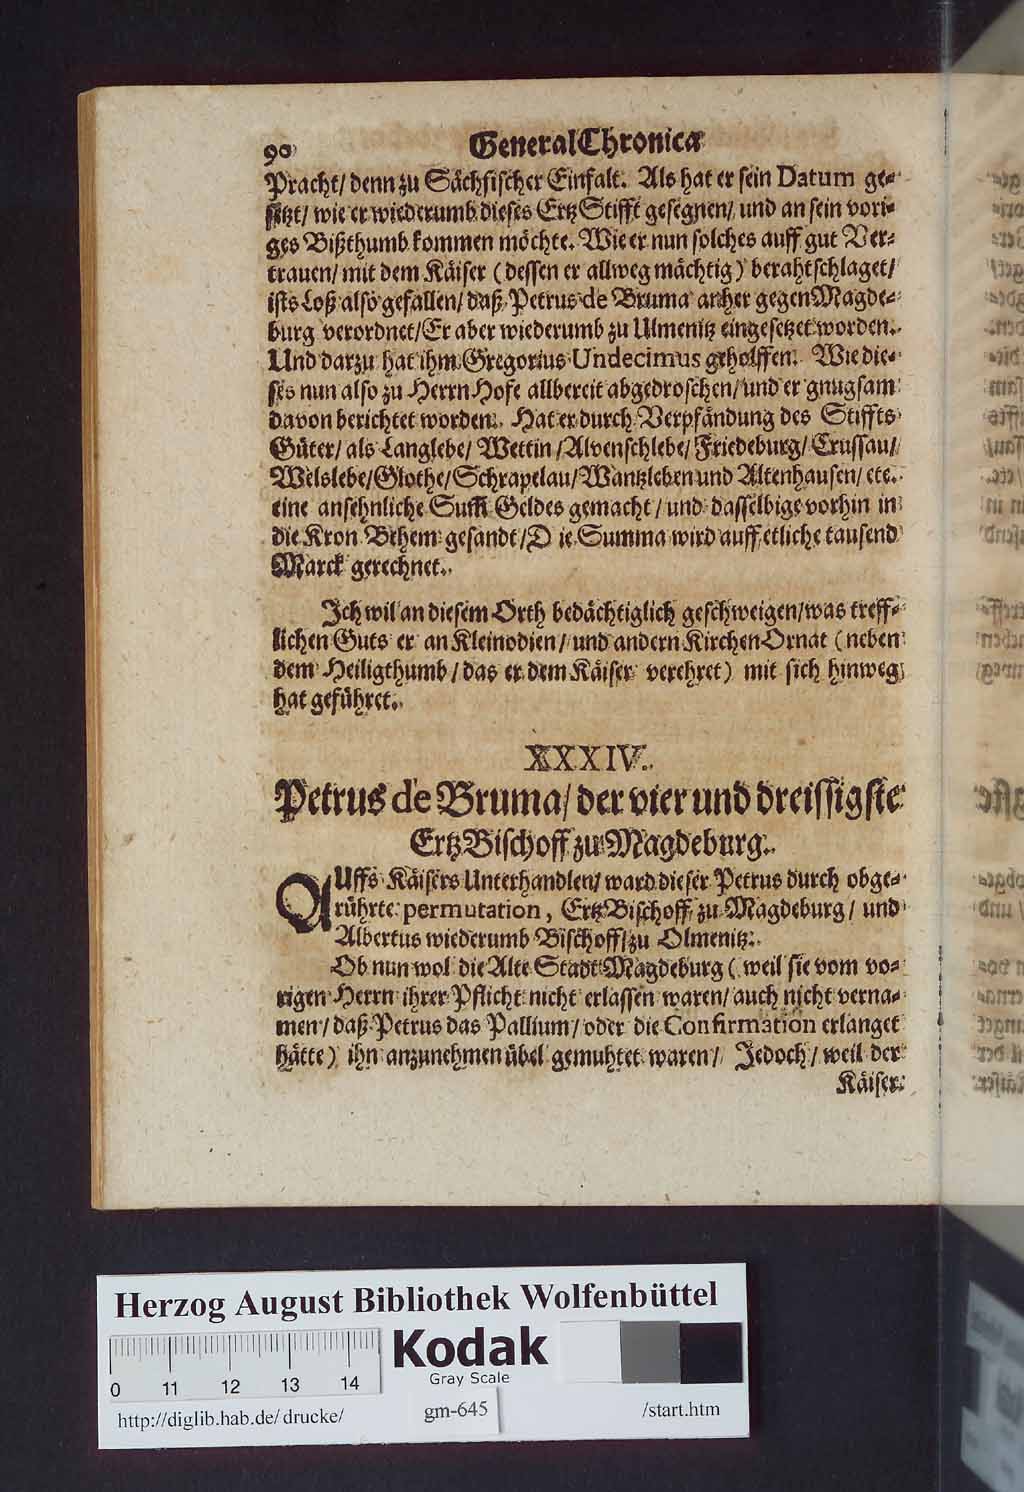 90 General Chronicæ
Pracht/ denn zu Sächsischer Einfalt. Als hat er sein Datum ge-
setzt/ wie er wiederumb dieses Ertz Stifft gesegnen/ und an sein vori-
ges Bißthumb kommen möchte. Wie er nun solches auff gut Ver-
trauen/ mit dem Käiser (dessen er allweg mächtig) berahtschlaget/
ists Loß also gefallen/ daß Petrus de Bruma anher gegen Magde-
burg verordnet/ Er aber wiederumb zu Ulmenitz eingesetzet worden.
Und darzu hat ihm Gregorius Undecimus geholffen. Wie die-
ses nun also zu Herrn Hofe allbereit abgedroschen/ und er gnugsam
davon berichtet worden. Hat er durch Verpfändung des Stiffts
Güter/ als Langlebe/ Wettin/ Alvenschlebe/ Friedeburg/ Crussau/
Welslebe/ Glothe/ Schrapelau/ Wantzleben und Altenhausen/ etc.
eine ansehnliche Sum̃ Geldes gemacht/ und dasselbige vorhin in
die Kron Behem gesandt/ Die Summa wird auff etliche tausend
Marck gerechnet.
Ich wil an diesem Orth bedächtiglich geschweigen/ was treff-
lichen Guts er an Kleinodien/ und andern Kirchen Ornat (neben
dem Heiligthumb/ das er dem Käiser verehret) mit sich hinweg
hat geführet.
XXXIV.
Petrus de Bruma/ der vier und dreissigste
Ertz Bischoff zu Magdeburg.
AUffs Käisers Unterhandlen/ ward dieser Petrus durch obge-
rührte permutation, Ertz Bischoff zu Magdeburg/ und
Albertus wiederumb Bischoff/ zu Olmenitz.
Ob nun wol die Alte Stadt Magdeburg (weil sie vom vo-
rigen Herrn ihrer Pflicht nicht erlassen waren/ auch nicht verna-
men/ daß Petrus das Pallium/ oder die Confirmation erlanget
hätte) ihn anzunehmen übel gemuhtet waren/ Jedoch/ weil der
Käiser
Herzog August Bibliothek Wolfenbüttel
Kodak
Gray Scale
0 11 12 13 14
http://diglib.hab.de/drucke/ gm-645 /start.htm